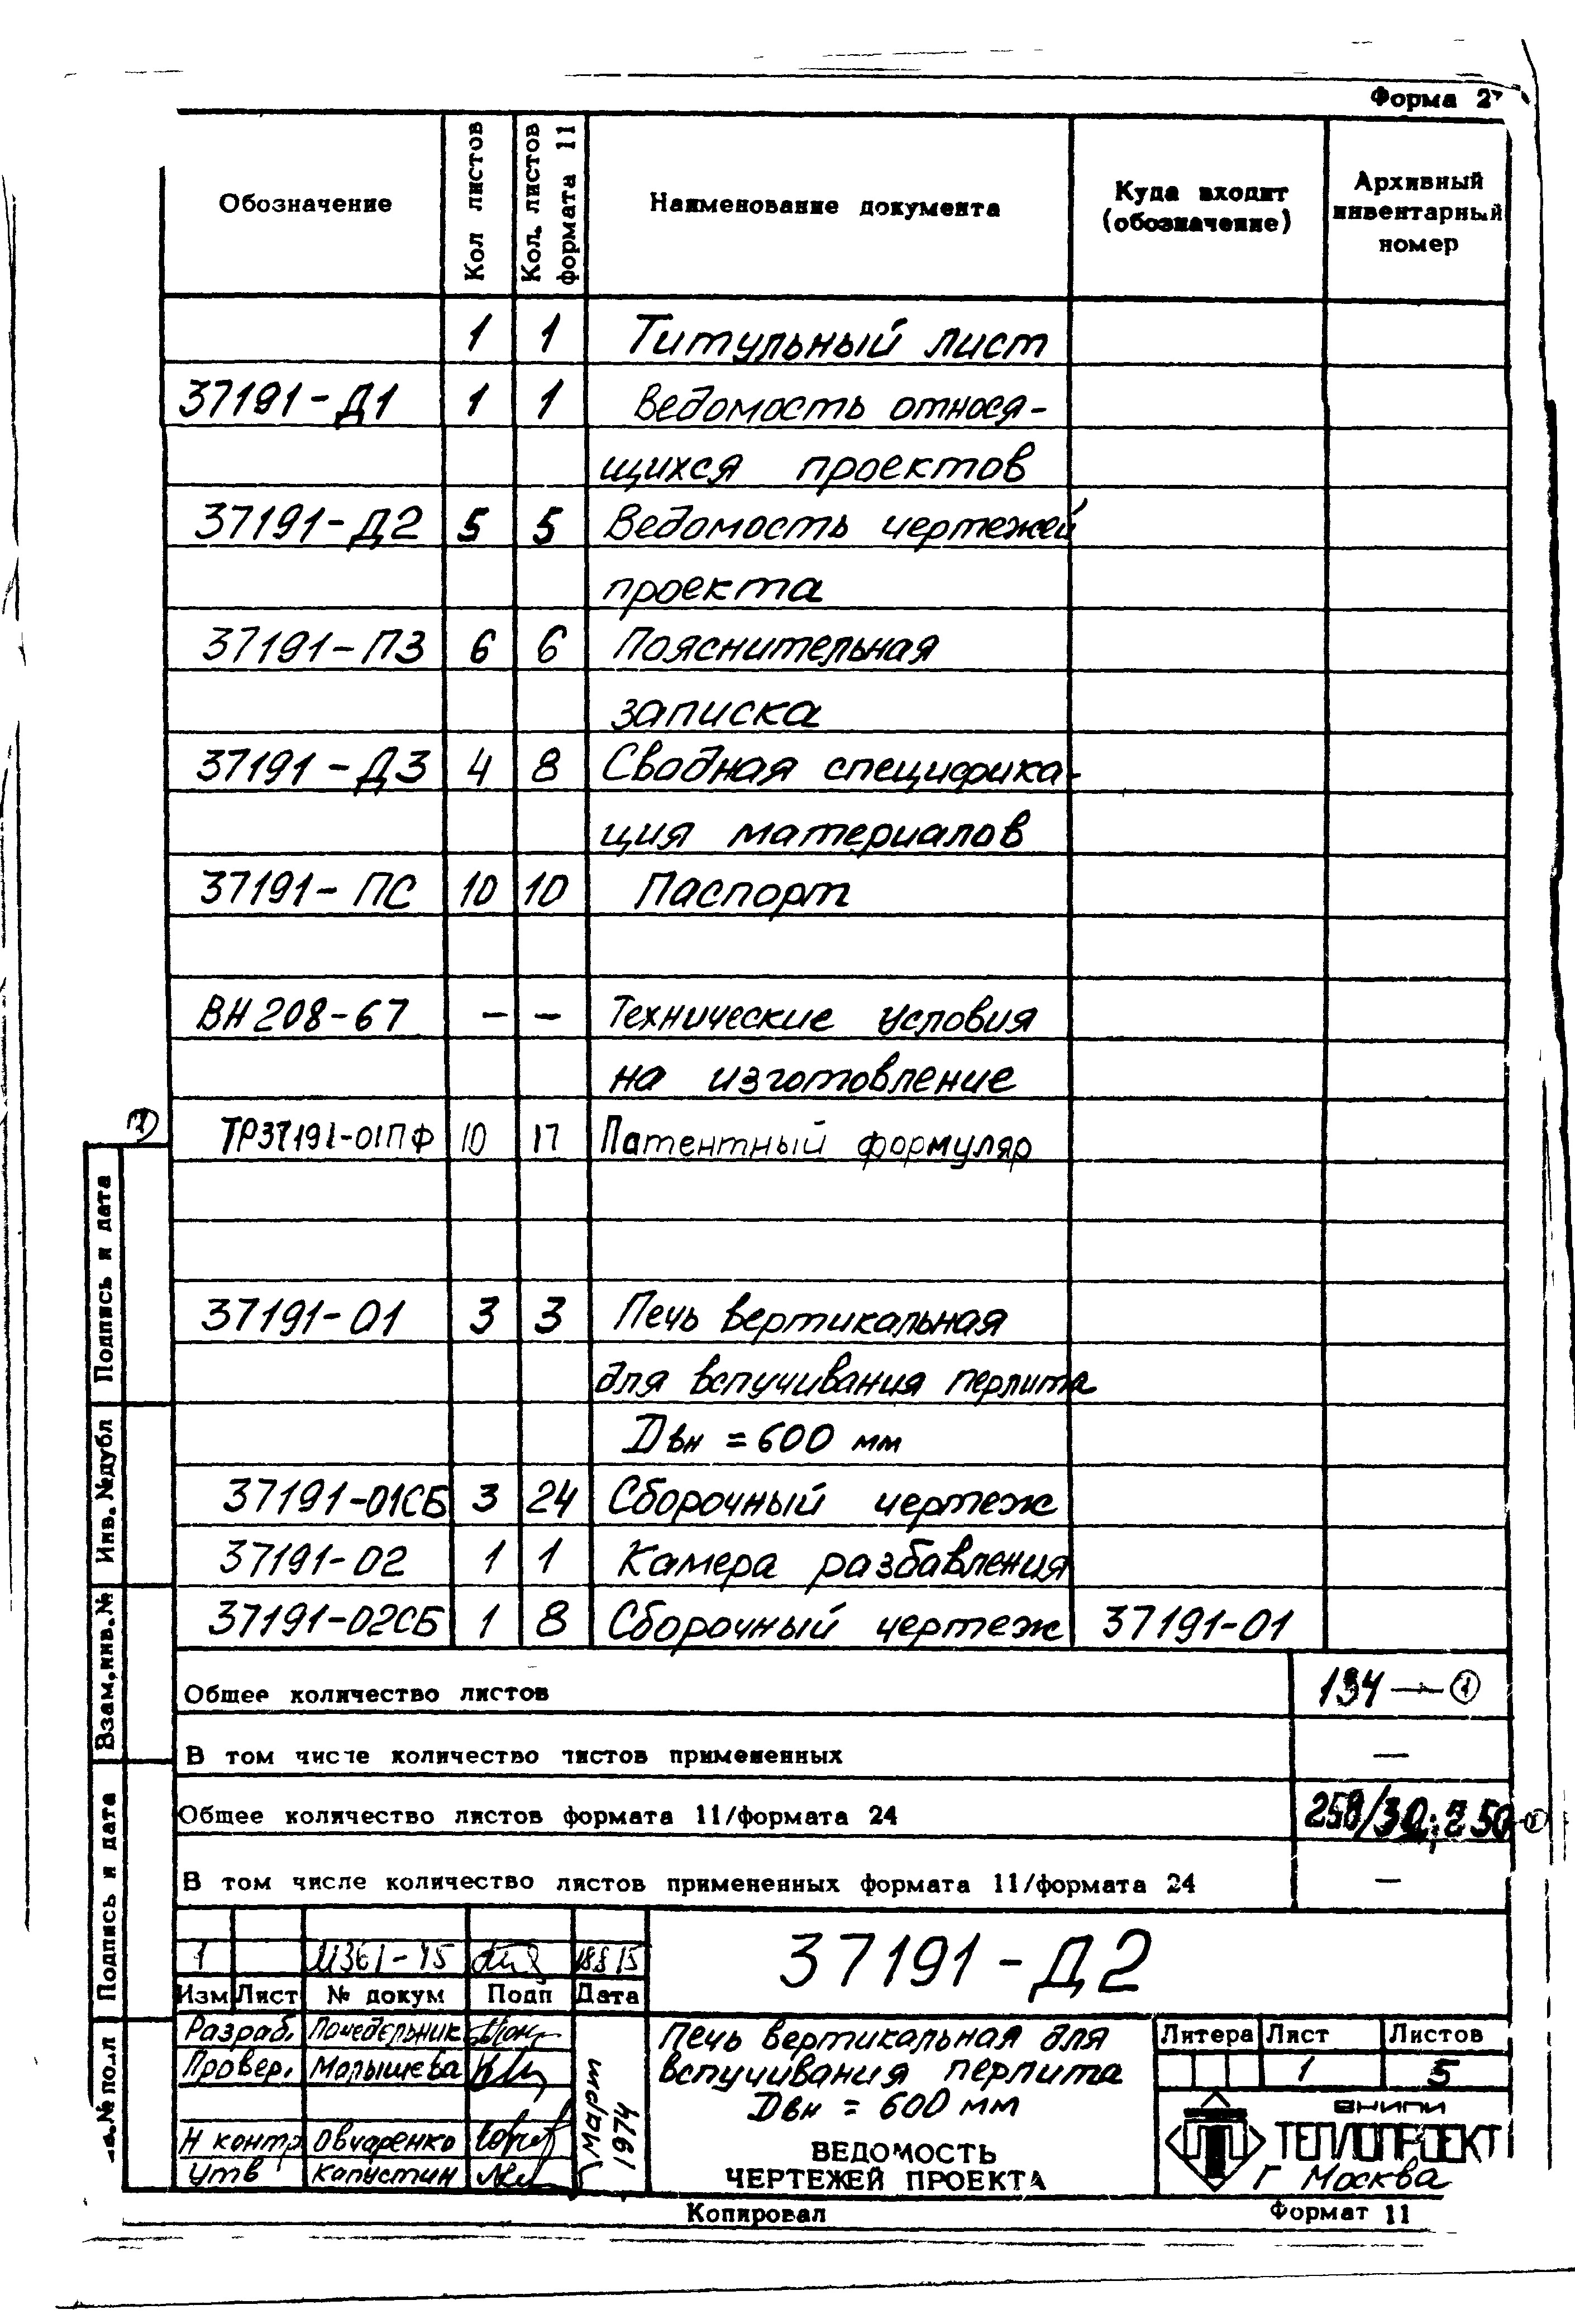 Форма 2
Обозначение
Кол листов
Кол. листов формата 11
Наименование документа
Куда входит
(обозначение)
Архивный
инвентарный
номер
1 1 Титульный лист
37191-Д1 1 1 Ведомость относя-
щихся проектов
37191-Д2 5 5 Ведомость чертежей
проекта
37191-ПЗ 6 6 Пояснительная
записка
37191-Д3 4 8 Сводная специфика-
ция материалов
37191-ПС 10 10 Паспорт
ВН 208-67 — — Технические условия
на изготовление
ТР37191-01ПФ 10 17 Патентный формуляр
37191-01 3 3 Печь вертикальная
для вспучивания перлита
Dвн = 600 мм
37191-01СБ 3 24 Сборочный чертеж
37191-02 1 1 Камера разбавления
37191-02СБ 1 8 Сборочный чертеж 37191-01
Общее количество листов 134 — 1
В том числе количество листов примененных —
Общее количество листов формата 11/формата 24
В том числе количество листов примененных формата 11/формата 24 —
Подпись и дата
Инв. №дубл
Взам.инв.№
Подпись и дата
№ подл
1
Изм Лист № докум Подп Дата
37191-Д2
Разраб. Понедельник
Провер. Малышева
Н контр Овчаренко
Утв Капустин
Март 1974
Печь вертикальная для
вспучивания перлита
Dвн = 600 мм
ВЕДОМОСТЬ
ЧЕРТЕЖЕЙ ПРОЕКТА
Литера Лист Листов
1 5
ВНИПИ
ТЕПЛОПРОЕКТ
Г Москва
Копировал
Формат 11